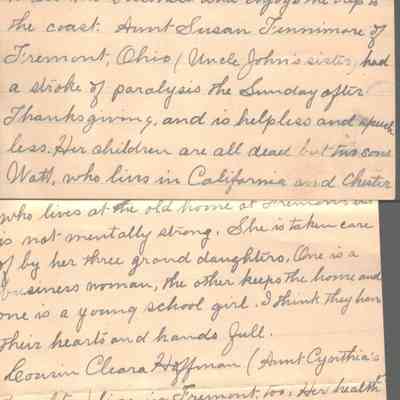 the coast. Aunt Susan Tinnimore of
Fremont, Ohio (Uncle John's sister) had
a stroke of paralysis the Sunday after
Thanksgiving, and is helpless and speech
less. Her children are all dead but two sons
Watt, who lives in California and Chester
who lives at the old home at Fremont
is not mentally strong. She is taken care
of by her three grand daughters. One is a
business woman, the other keeps the home and
one is a young school girl. I think they have
their hearts and hands full.
Cousin Cleara Hoffman (Aunt Cynthia's
lives in Fremont, too. Her health